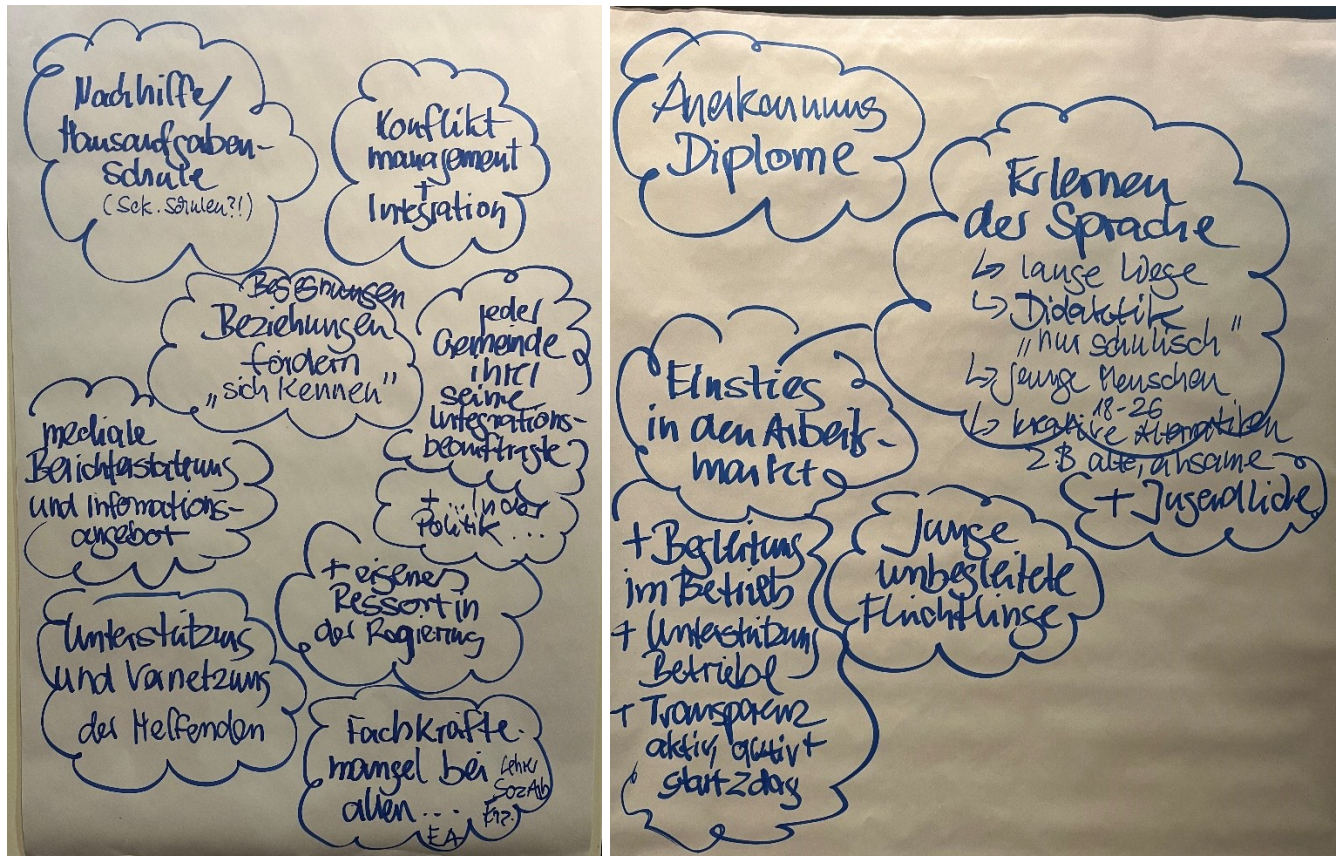 Nachhilfe/
Hausaufgaben-
Schule
(Sek. Schulen?!)
Konflikt
management
+
Integration
Begegnungen
Beziehungen
fördern
„sich kennen"
jeder
Gemeinde
ihre/
seine
Integrations-
beauftragte
+ ... in der
Politik...
mediale
Berichterstattung
und Informations-
angebot
+ eigenes
Ressort in
der Regierung
Unterstützung
und Vernetzung
der Helfenden
Fachkräfte-
mangel bei
allen...
Lehrer
SozArb
Erz.
EA
Anerkennung
Diplome
Erlernen
der Sprache
↳ lange Wege
↳ Didaktik
„nur schulisch"
↳ junge Menschen
18-26
↳ kreative Alternativen
z B alte, einsame
+ Jugendliche
Einstieg
in den Arbeits-
markt
+ Begleitung
im Betrieb
+ Unterstützung
Betriebe
+ Transparenz
aktiv,
Junge
unbegleitete
Flüchtlinge